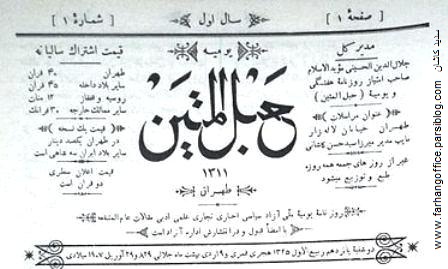 [ صفحهٔ ۱ ] [ سال اول ] [ شمارهٔ ۱ ]
مدیر کل
جلال‌الدین الحسینی مؤید الاسلام
صاحب امتیاز روزنامهٔ هفتگی
و یومیهٔ ( حبل المتین )
( عنوان مراسلات )
طهران خیابان لاله زار
نایب مدیر میرزا سید حسن کاشانی
غیر از روز های جمعه همه روزه
طبع و توزیع میشود
یومیه
حبل المتین
۱۳۱۱
طهران
قیمت اشتراک سالیانه
طهران ۴۰ قران
سایر بلاد داخله ۴۵ قران
روسیه و قفقاز ۱۲ منات
سایر ممالک خارجه ۳۰ فرانک
قیمت یک نسخه
در طهران یکصد دینار
سایر بلاد ایران سه شاهی است
قیمت اعلان سطری
دو قران است
روزنامهٔ یومیهٔ ملی آزاد سیاسی اخباری تجاری علمی ادبی مقالات عام‌المنفعه
با امضا قبول و در انتشارش اداره آزاد است
دوشنبهٔ پانزدهم ربیع الاول ۱۳۲۵ هجری قمری و ۹ اردی بهشت ماه جلالی ۸۲۹ و ۲۹ آوریل ۱۹۰۷ میلادی
www.farhangoffice.parsiblog.com